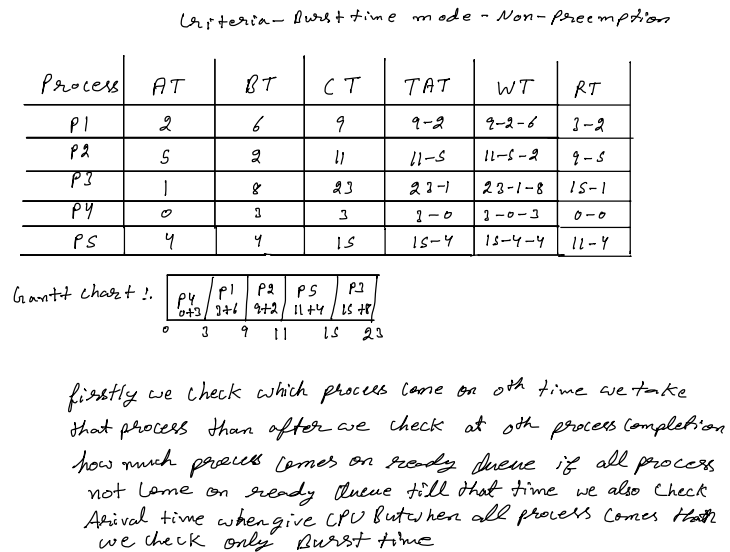 Criteria - Burst time mode - Non-Preemption
Process AT BT CT TAT WT RT
P1 2 6 9 9-2 9-2-6 3-2
P2 5 2 11 11-5 11-5-2 9-5
P3 1 8 23 23-1 23-1-8 15-1
P4 0 3 3 3-0 3-0-3 0-0
P5 4 4 15 15-4 15-4-4 11-4
Gantt chart :.
P4 P1 P2 P5 P3
0+3 3+6 9+2 11+4 15+8
0 3 9 11 15 23
firstly we check which process come on 0th time we take
that process than after we check at 0th process completion
how much process comes on ready Queue if all process
not come on ready Queue till that time we also check
Arival time when give CPU But when all process comes than
we check only Burst time